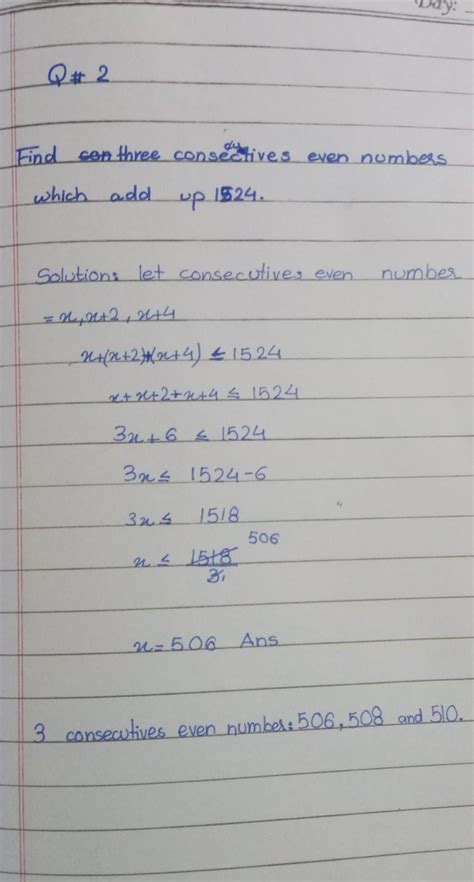 Day:
Q# 2
Find three consectives even numbers
which add up 1524.
Solution: let consecutives even number
= x, x+2, x+4
x+(x+2)+(x+4) ≤ 1524
x+x+2+x+4 ≤ 1524
3x+6 ≤ 1524
3x ≤ 1524-6
3x ≤ 1518
506
x ≤ 1518
3
x = 506 Ans
3 consecutives even number: 506, 508 and 510.